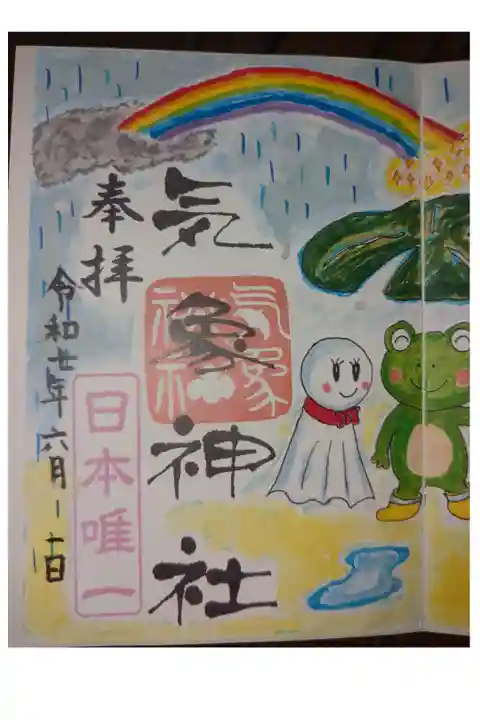 気象神社
気象神社
奉拝
日本唯一
令和 年六月 日